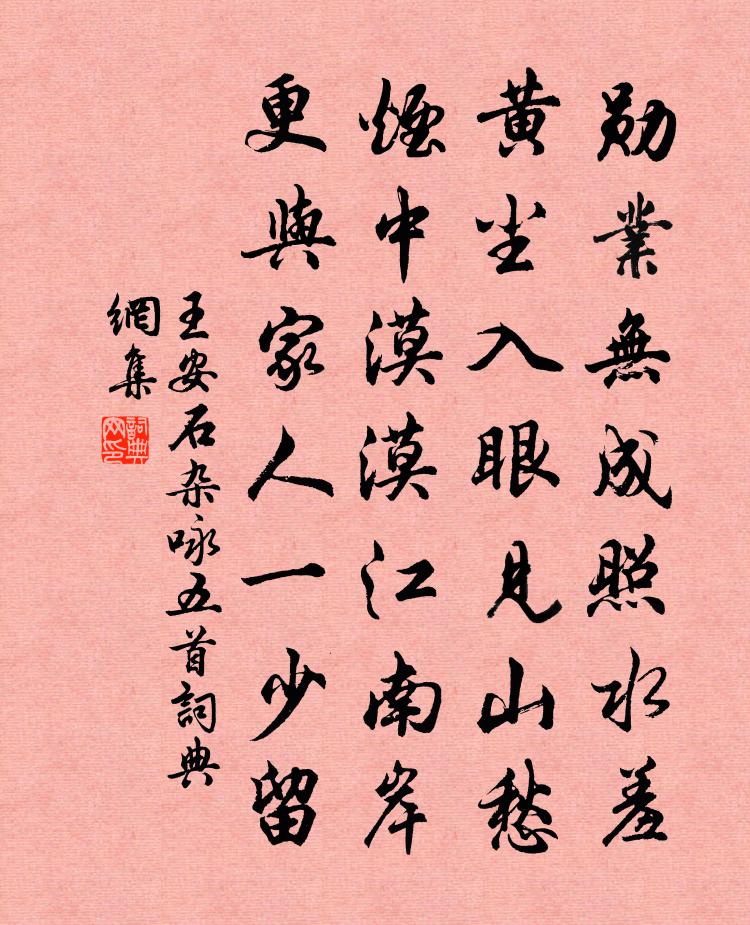 勋業無成照水羞
黄尘入眼見山愁
煙中漠漠江南岸
更與家人一少留
王安石杂咏五首詞典
網集
詞典網印